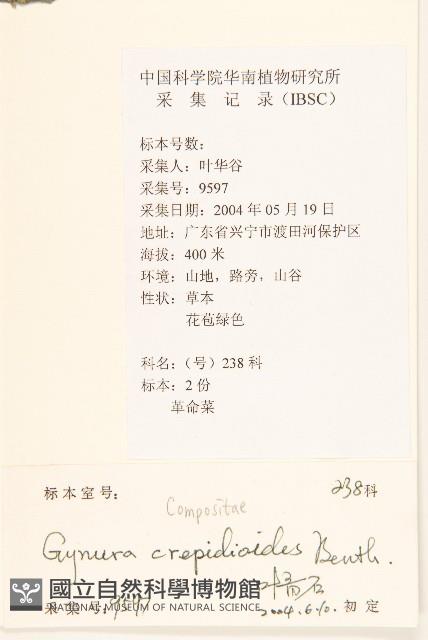 中国科学院华南植物研究所
采 集 记 录（IBSC）
标本号数：
采集人：叶华谷
采集号：9597
采集日期：2004 年 05 月 19 日
地址：广东省兴宁市渡田河保护区
海拔：400 米
环境：山地，路旁，山谷
性状：草本
花苞绿色
科名：（号）238 科
标本：2 份
革命菜
标本室号： 238科
Compositae
Gynura crepidioides Benth.
國立自然科學博物館
NATIONAL MUSEUM OF NATURAL SCIENCE
采集号： 2004.6.10. 初定